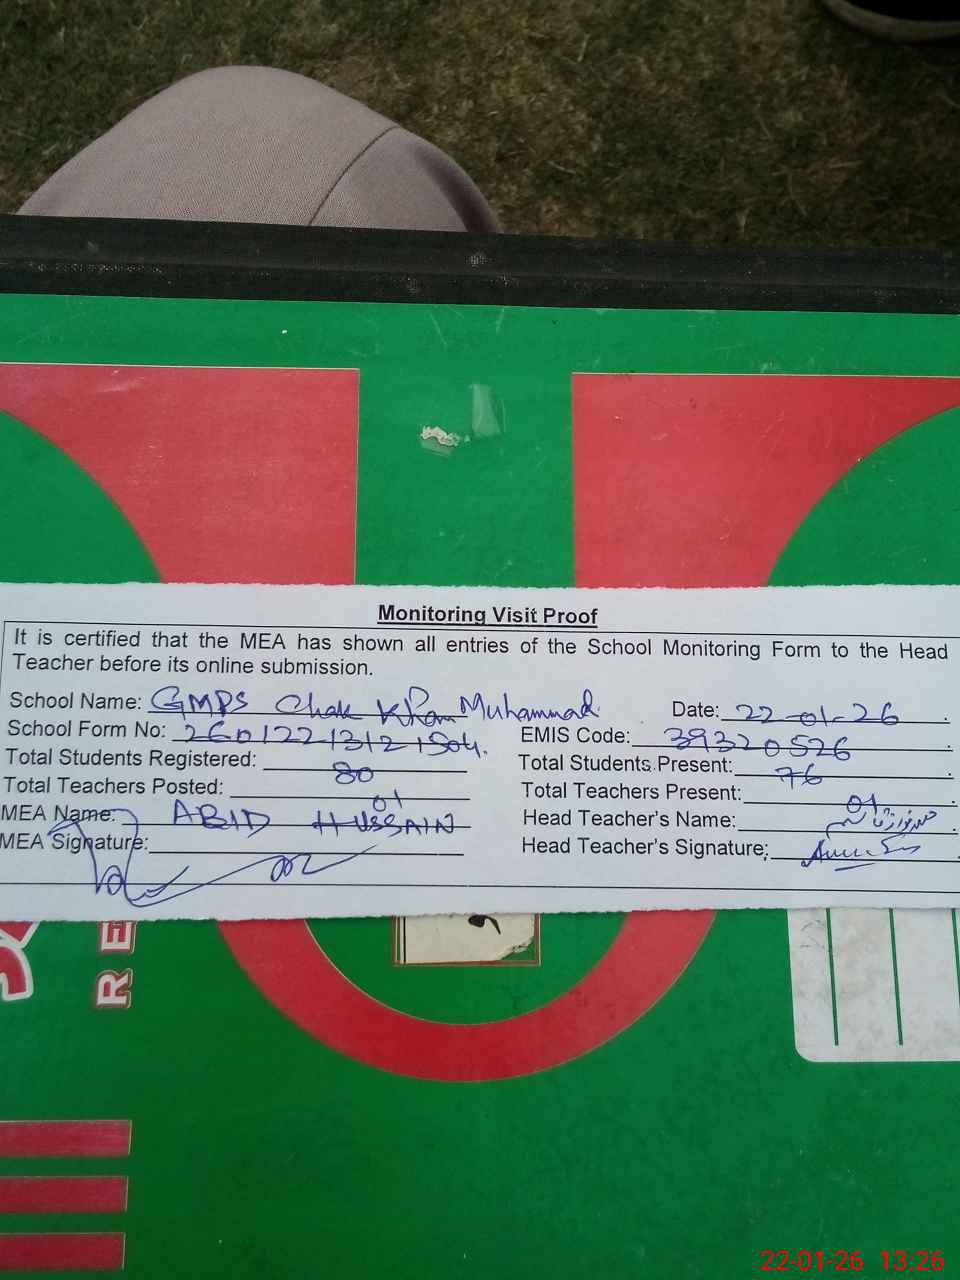 Monitoring Visit Proof
It is certified that the MEA has shown all entries of the School Monitoring Form to the Head
Teacher before its online submission.
School Name: GMPS Chak Khan Muhammad Date: 22-01-26
School Form No: EMIS Code: 39320526
Total Students Registered: 80 Total Students Present: 76
Total Teachers Posted: 01 Total Teachers Present: 01
MEA Name: ABID HUSSAIN Head Teacher's Name:
MEA Signature: Head Teacher's Signature:
RE
22-01-26 13:26